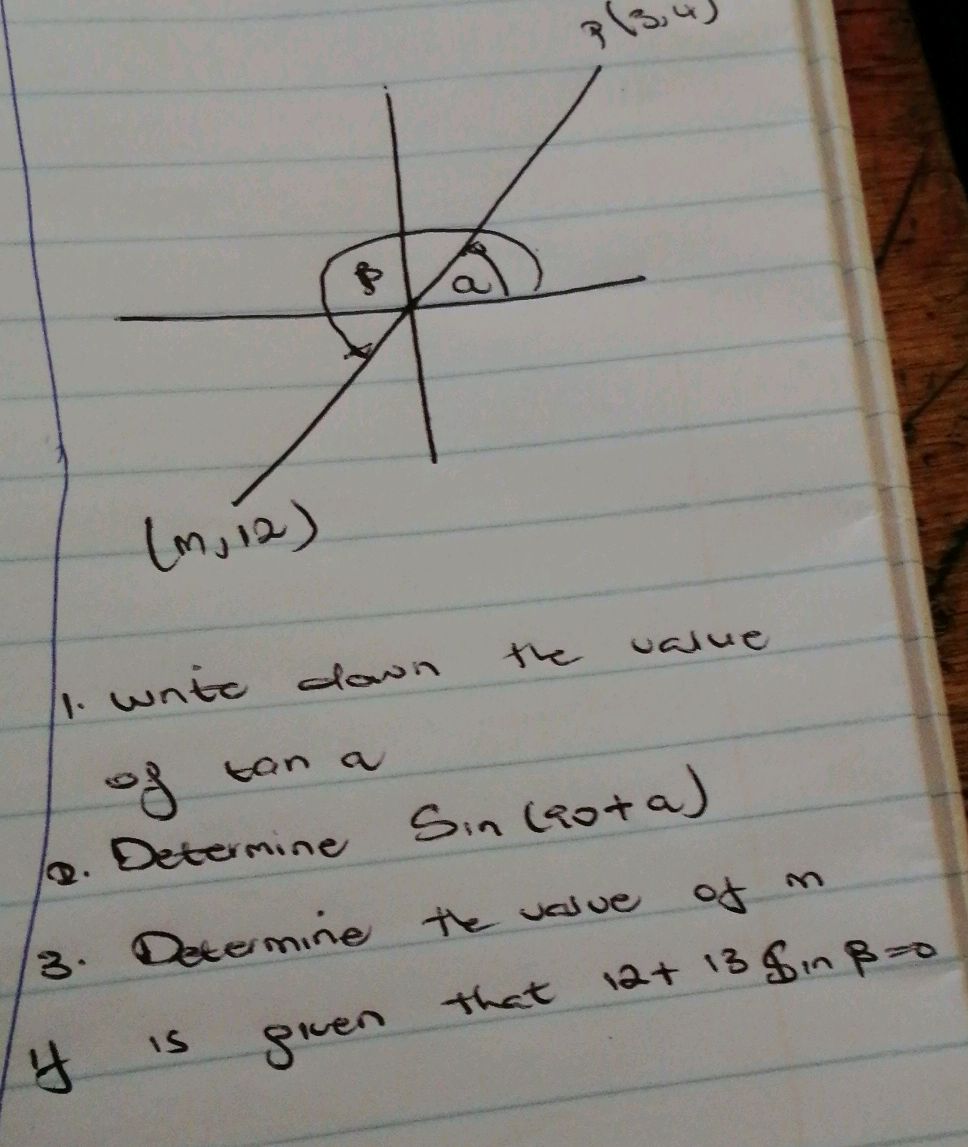 P(3,4)
β
a
(m,12)
1. write down the value
of tan a
2. Determine Sin (90+a)
3. Determine the value of m
if is given that 12+ 13 Sin β=0